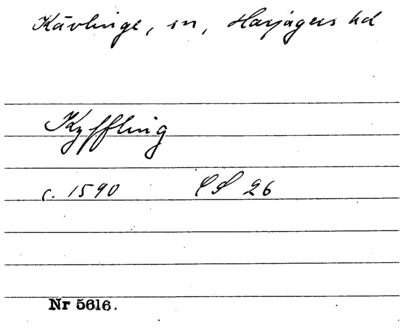 Kävlinge, sn, Harjagers hd
Kyffling
c. 1590 LS 26
Nr 5616.